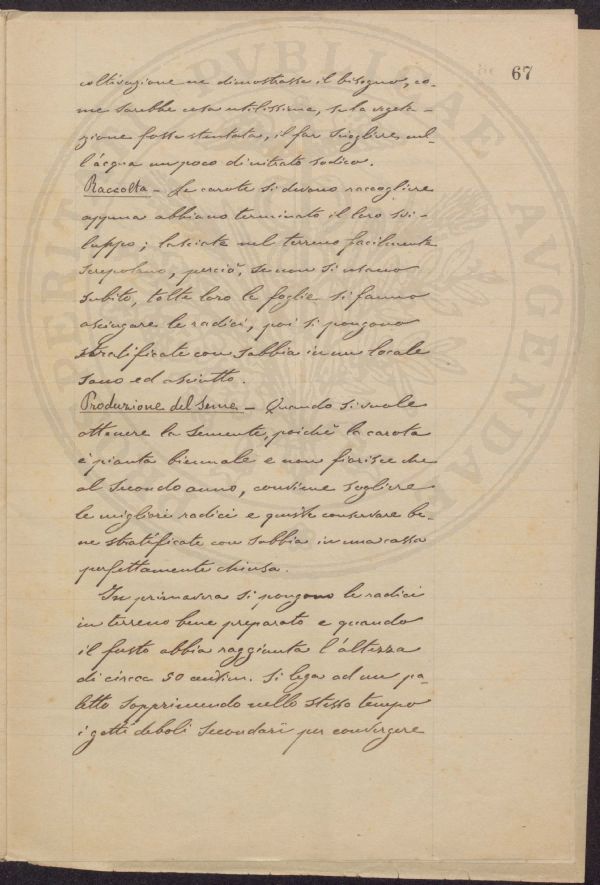 67
coltivazione ne dimostrasse il bisogno, co-
me sarebbe cosa utilissima, se la vegeta-
zione fosse stentata, il far sciogliere nel-
l'acqua un poco di nitrato sodico.
Raccolta - Le carote si devono raccogliere
appena abbiano terminato il loro svi-
luppo; lasciate nel terreno facilmente
screpolano, perciò, se non si usano
subito, tolte loro le foglie si fanno
asciugare le radici, poi si pongono
stratificate con sabbia in un locale
sano ed asciutto.
Produzione del Seme - Quando si vuole
ottenere la semente, poichè la carota
è pianta biennale e non fiorisce che
al secondo anno, conviene scegliere
le migliori radici e queste conservare be-
ne stratificate con sabbia in una cassa
perfettamente chiusa.
In primavera si pongono le radici
in terreno bene preparato e quando
il fusto abbia raggiunta l'altezza
di circa 50 centim. si lega ad un pa-
letto sopprimendo nello stesso tempo
i getti deboli secondarî per convergere
PVBLICAE AVGENDAE